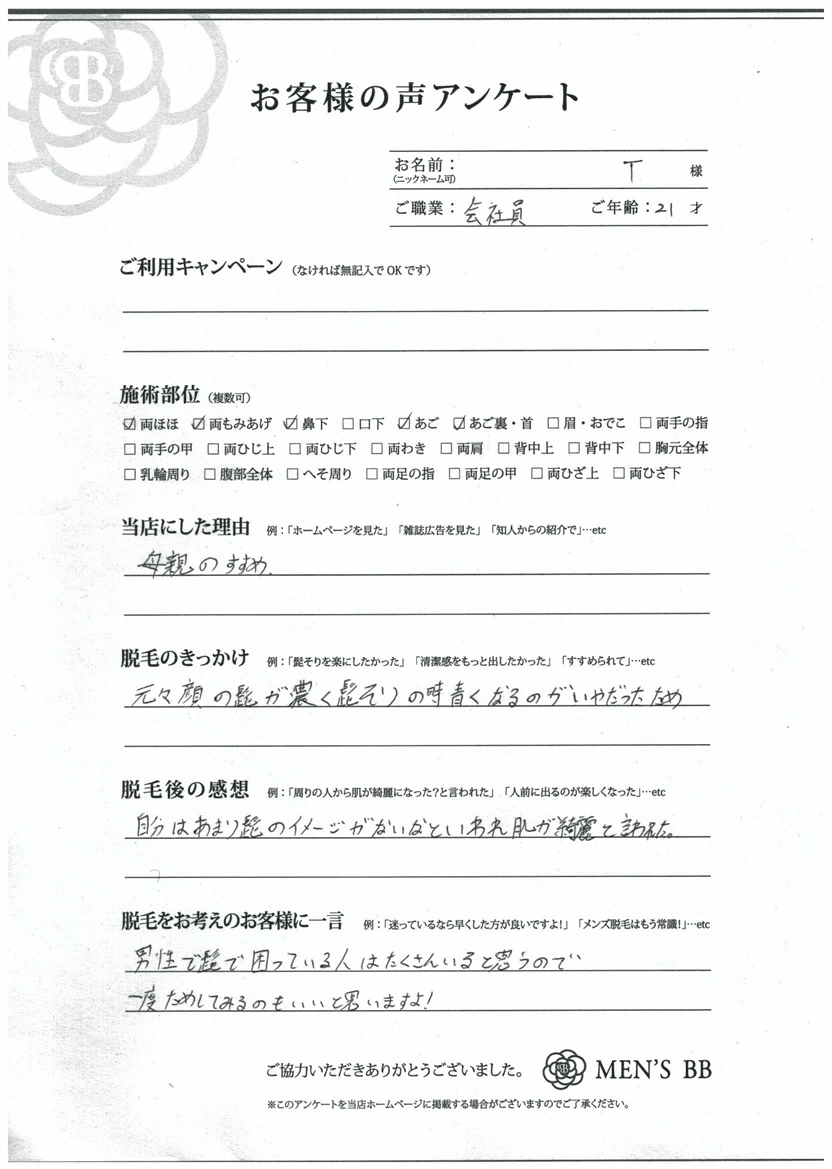 BB
お客様の声アンケート
お名前： T 様
(ニックネーム可)
ご職業：会社員 ご年齢：21 才
ご利用キャンペーン （なければ無記入でOKです）
施術部位 （複数可）
☑両ほほ ☑両もみあげ ☑鼻下 □口下 ☑あご ☑あご裏・首 □眉・おでこ □両手の指
□両手の甲 □両ひじ上 □両ひじ下 □両わき □両肩 □背中上 □背中下 □胸元全体
□乳輪周り □腹部全体 □へそ周り □両足の指 □両足の甲 □両ひざ上 □両ひざ下
当店にした理由 例：「ホームページを見た」「雑誌広告を見た」「知人からの紹介で」…etc
母親のすすめ.
脱毛のきっかけ 例：「髭そりを楽にしたかった」「清潔感をもっと出したかった」「すすめられて」…etc
元々顔の髭が濃く髭そりの時青くなるのがいやだったため
脱毛後の感想 例：「周りの人から肌が綺麗になった?と言われた」「人前に出るのが楽しくなった」…etc
自分はあまり髭のイメージがないなといわれ肌が綺麗と言われた。
脱毛をお考えのお客様に一言 例：「迷っているなら早くした方が良いですよ!」「メンズ脱毛はもう常識!」…etc
男性で髭で困っている人はたくさんいると思うので
一度ためしてみるのもいいと思いますよ!
ご協力いただきありがとうございました。 MEN'S BB
※このアンケートを当店ホームページに掲載する場合がございますのでご了承ください。